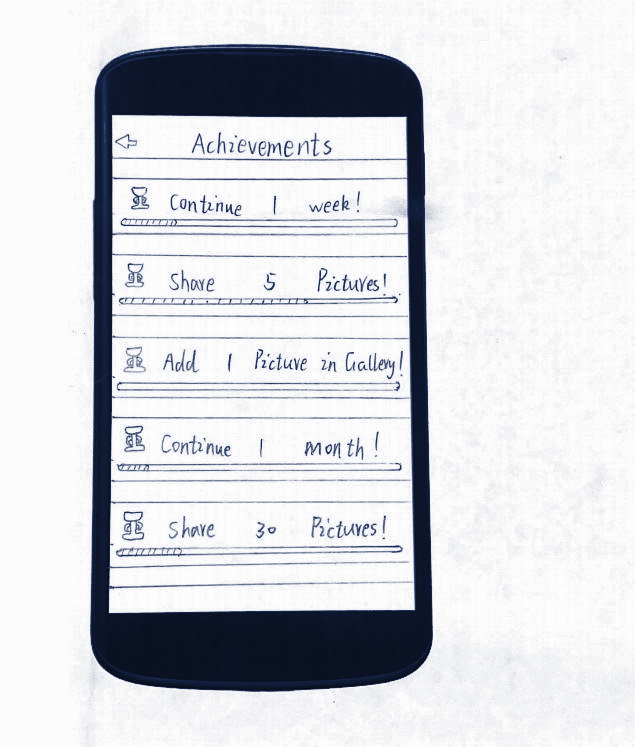 Achievements
Continue 1 week!
Share 5 Pictures!
Add 1 Picture in Gallery!
Continue 1 month!
Share 30 Pictures!